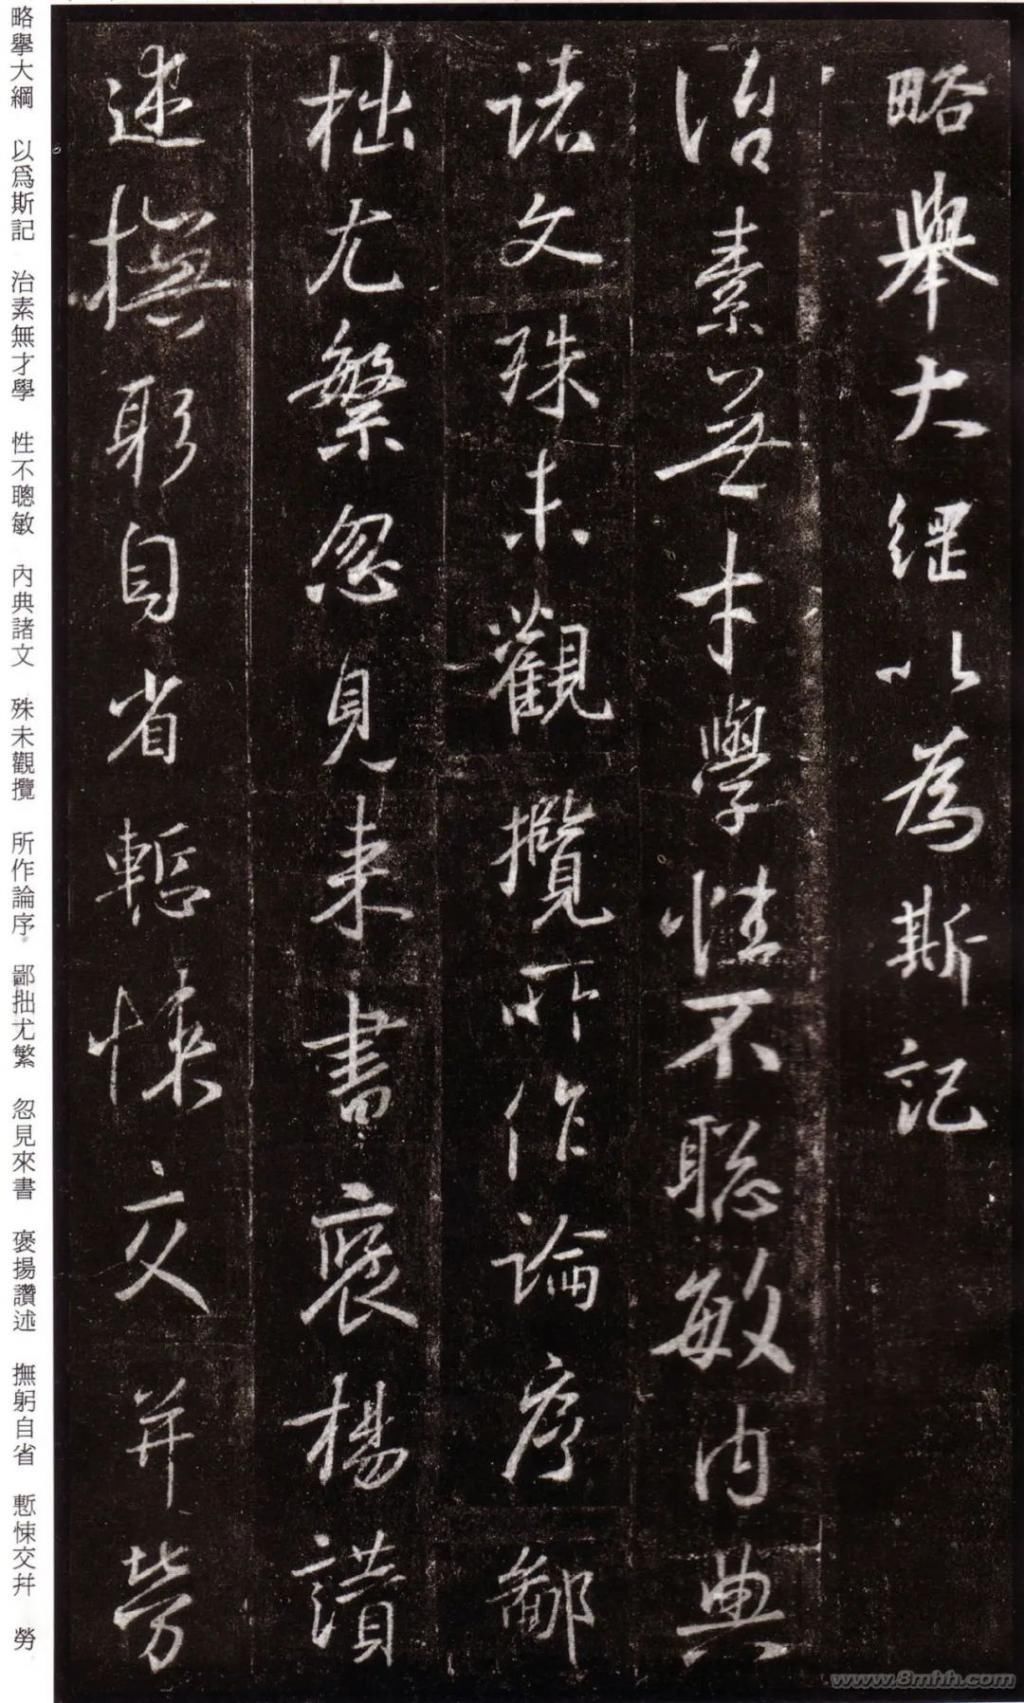 略舉大綱以為斯記
治素無才學性不聡敏內典
諸文殊未觀攬所作論序鄙
拙尤繁忽見来書褒揚讃
述撫躬自省慙悚交并勞
略舉大綱 以爲斯記 治素無才學 性不聰敏 內典諸文 殊未觀攬 所作論序 鄙拙尤繁 忽見來書 褒揚讚述 撫躬自省 慙悚交幷 勞
www.8mhh.com